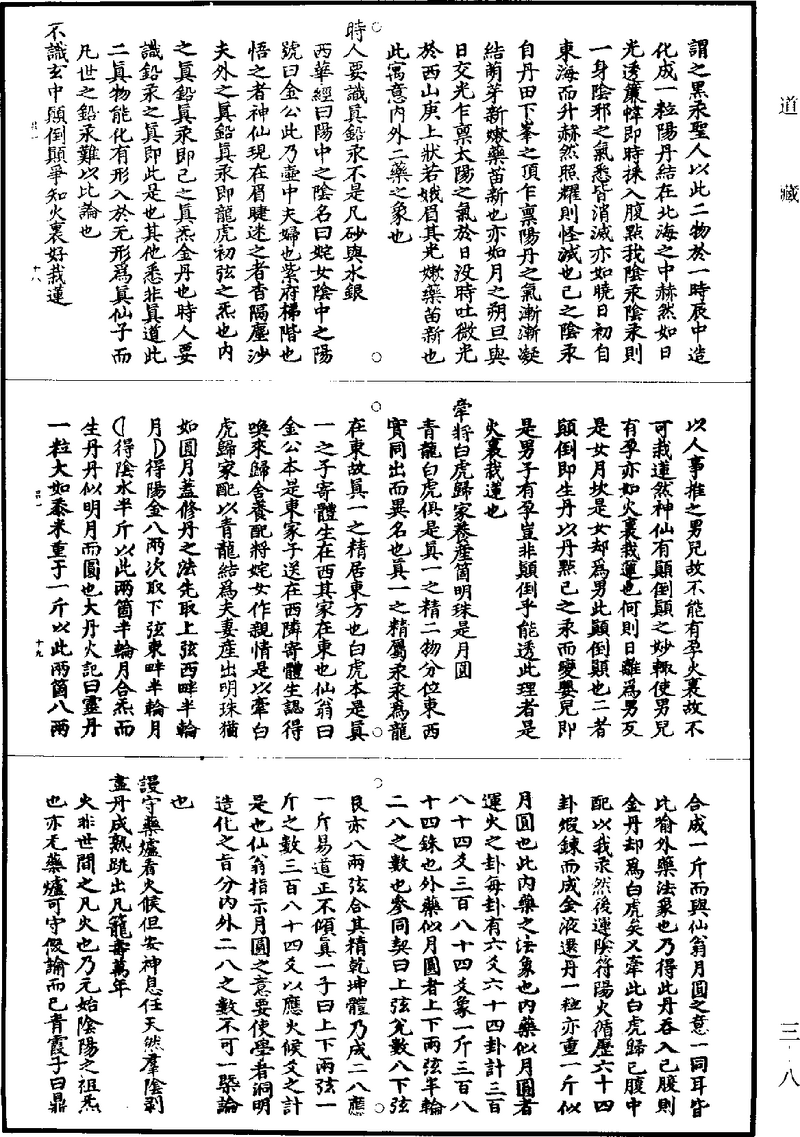 道藏
三·八
謂之黑汞聖人以此二物於一時辰中造
化成一粒陽丹結在北海之中赫然如日
光透簾幃即時採入腹點我陰汞陰汞則
一身陰邪之氣悉皆消滅亦如曉日初自
東海而升赫然照耀則怪滅也己之陰汞
自丹田下峯之頂乍稟陽丹之氣漸漸凝
結萌芽新嫩藥苗新也亦如月之朔旦與
日交光乍稟太陽之氣於日没時吐微光
於西山庚上狀若娥眉其光嫩藥苗新也
此寓意内外二藥之象也
時人要識真鉛汞不是凡砂與水銀
西華經曰陽中之陰名曰姹女陰中之陽
號曰金公此乃壺中夫婦也紫府梯階也
悟之者神仙現在眉睫迷之者杳隔塵沙
夫外之真鉛真汞即龍虎初弦之炁也内
之真鉛真汞即己之真炁金丹也時人要
識鉛汞之真即此是也其他悉非真道此
二真物能化有形入於无形爲真仙子而
凡世之鉛汞難以比論也
不識玄中顛倒顛爭知火裏好栽蓮
十八
以人事推之男兒故不能有孕火裏故不
可栽蓮然神仙有顛倒顛之妙輙使男兒
有孕亦如火裏栽蓮也何則日離爲男反
是女月坎是女却爲男此顛倒顛也二者
顛倒即生丹以丹點己之汞而變嬰兒即
是男子有孕豈非顛倒乎能透此理者是
火裏栽蓮也
牽將白虎歸家養産箇明珠是月圓
青龍白虎俱是真一之精二物分位東西
實同出而異名也真一之精屬汞汞爲龍
在東故真一之精居東方也白虎本是真
一之子寄體生在西其家在東也仙翁曰
金公本是東家子送在西隣寄體生認得
喚來歸舍養配將姹女作親情是以牽白
虎歸家配以青龍結爲夫妻産出明珠猶
如圓月蓋修丹之法先取上弦西畔半輪
月得陽金八兩次取下弦東畔半輪月
得陰水半斤以此兩箇半輪月合炁而
生丹丹似明月而圓也大丹火記曰靈丹
一粒大如黍米重于一斤以此兩箇八兩
十九
合成一斤而與仙翁月圓之意一同耳皆
比喻外藥法象也乃得此丹吞入己腹則
金丹却爲白虎矣又牽此白虎歸己腹中
配以我汞然後運陰符陽火循歷六十四
卦煆鍊而成金液還丹一粒亦重一斤似
月圓也此内藥之法象也内藥似月圓者
運火之卦每卦有六爻六十四卦計三百
八十四爻三百八十四爻象一斤三百八
十四銖也外藥似月圓者上下兩弦半輪
二八之數也參同契曰上弦兌數八下弦
艮亦八兩弦合其精乾坤體乃成二八應
一斤易道正不傾真一子曰上下兩弦一
斤之數三百八十四爻以應火候爻之計
是也仙翁指示月圓之意要使學者洞明
造化之旨分内外二八之數不可一槩論
也
謾守藥爐看火候但安神息任天然羣陰剥
盡丹成熟跳出凡籠壽萬年
火非世間之凡火也乃元始陰陽之祖炁
也亦无藥爐可守假諭而已青霞子曰鼎